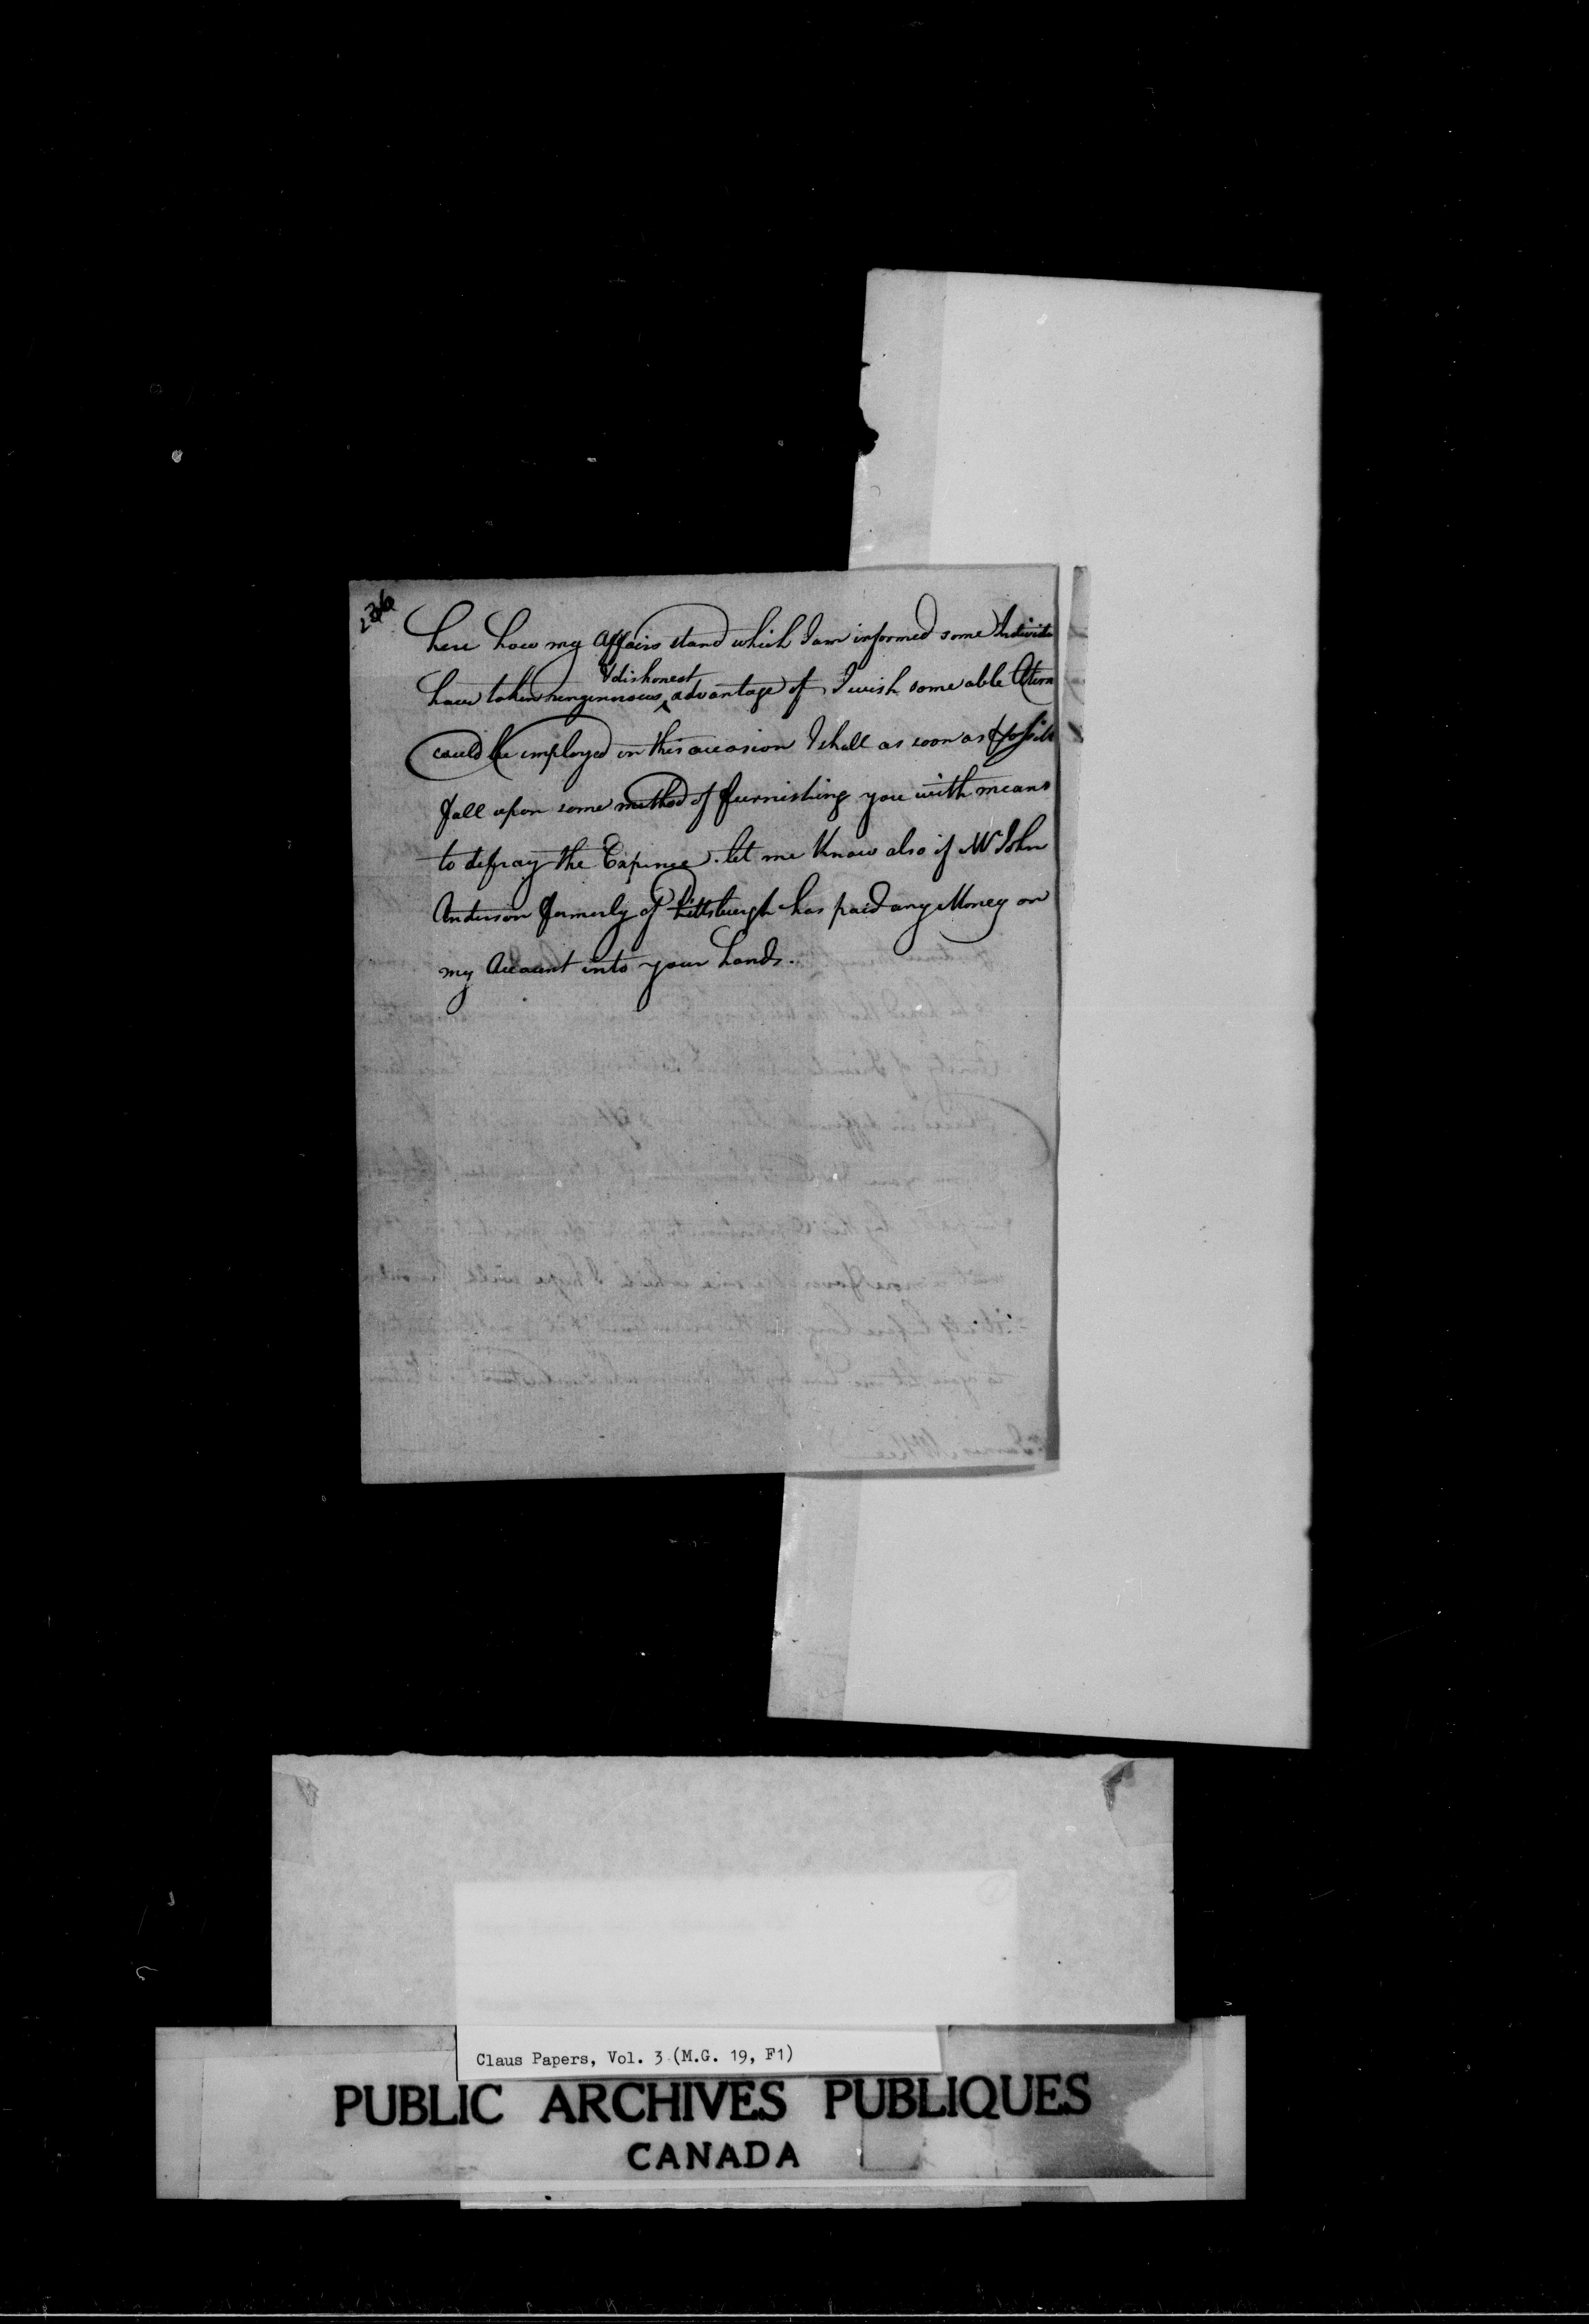 236
here how my Affairs stand which I am informed some Individu
& dishonest
have taken ungenerous advantage of, I wish some able Attorn
could be employed on this occasion I shall as soon as possibl
fall upon some method of furnishing you with means
to defray the Expence. let me know also if Mr John
Anderson formerly of Pittsburgh has paid any Money on
my Account into your hands.
Claus Papers, Vol. 3 (M.G. 19, F1)
PUBLIC ARCHIVES PUBLIQUES
CANADA